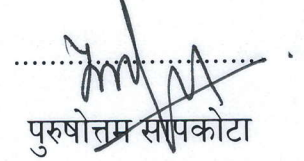 पुरुषोत्तम सापकोटा